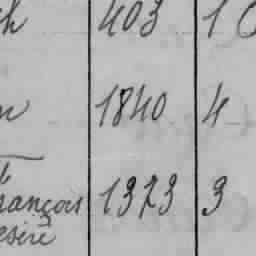 403 1
1840 4
rançois 1373 3
esiré